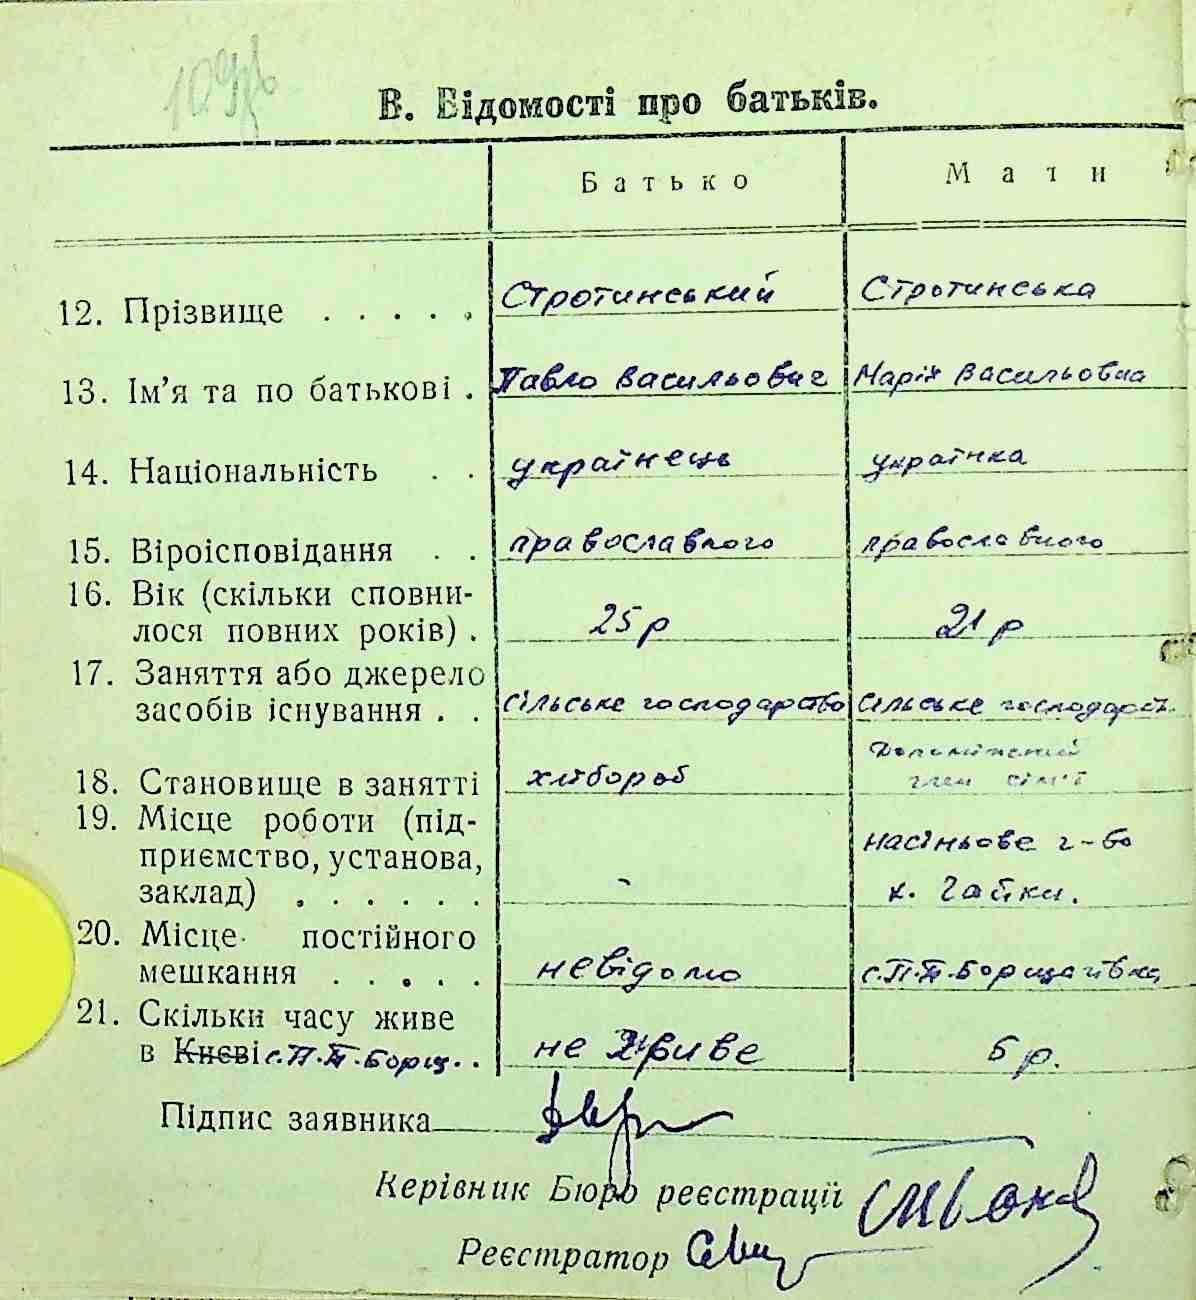 В. Відомості про батьків.
Батько Мати
12. Прізвище . . . . . Стротинський Стротинська
13. Ім’я та по батькові . Павло Васильович Марія Васильовна
14. Національність . . українець українка
15. Віроісповідання . . православного православного
16. Вік (скільки сповни-
лося повних років) . 25 р 21 р
17. Заняття або джерело
засобів існування . . сільське господарство сільське господарст.
Допоміжний
18. Становище в занятті хлібороб член сім'ї
19. Місце роботи (під-
приємство, установа, насіньове г-во
заклад) . . . . . . - х. Чайки.
20. Місце постійного
мешкання . . . . . невідомо с. П.П. Борщагівка
21. Скільки часу живе
в Києві с. П.П. Борщ. . не живе 5 р.
Підпис заявника
Керівник Бюро реєстрації
Реєстратор